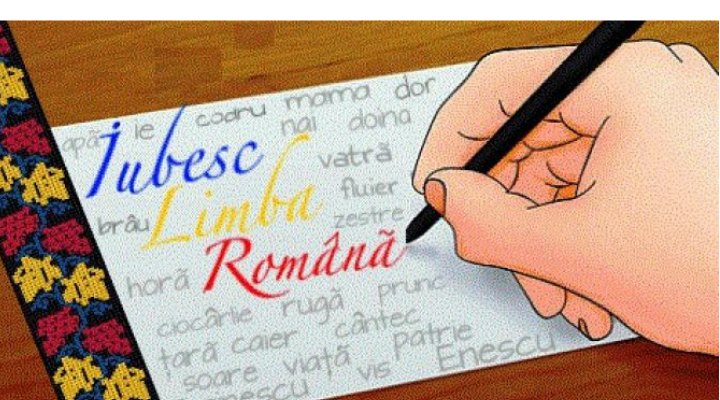 codru mama dor
apă le nai doina
Iubesc vatră
Limba fluier
brâu zestre
Română
horă prunc
ciocârlie rugă
țară caier cântec
soare viață vis patrie Enescu